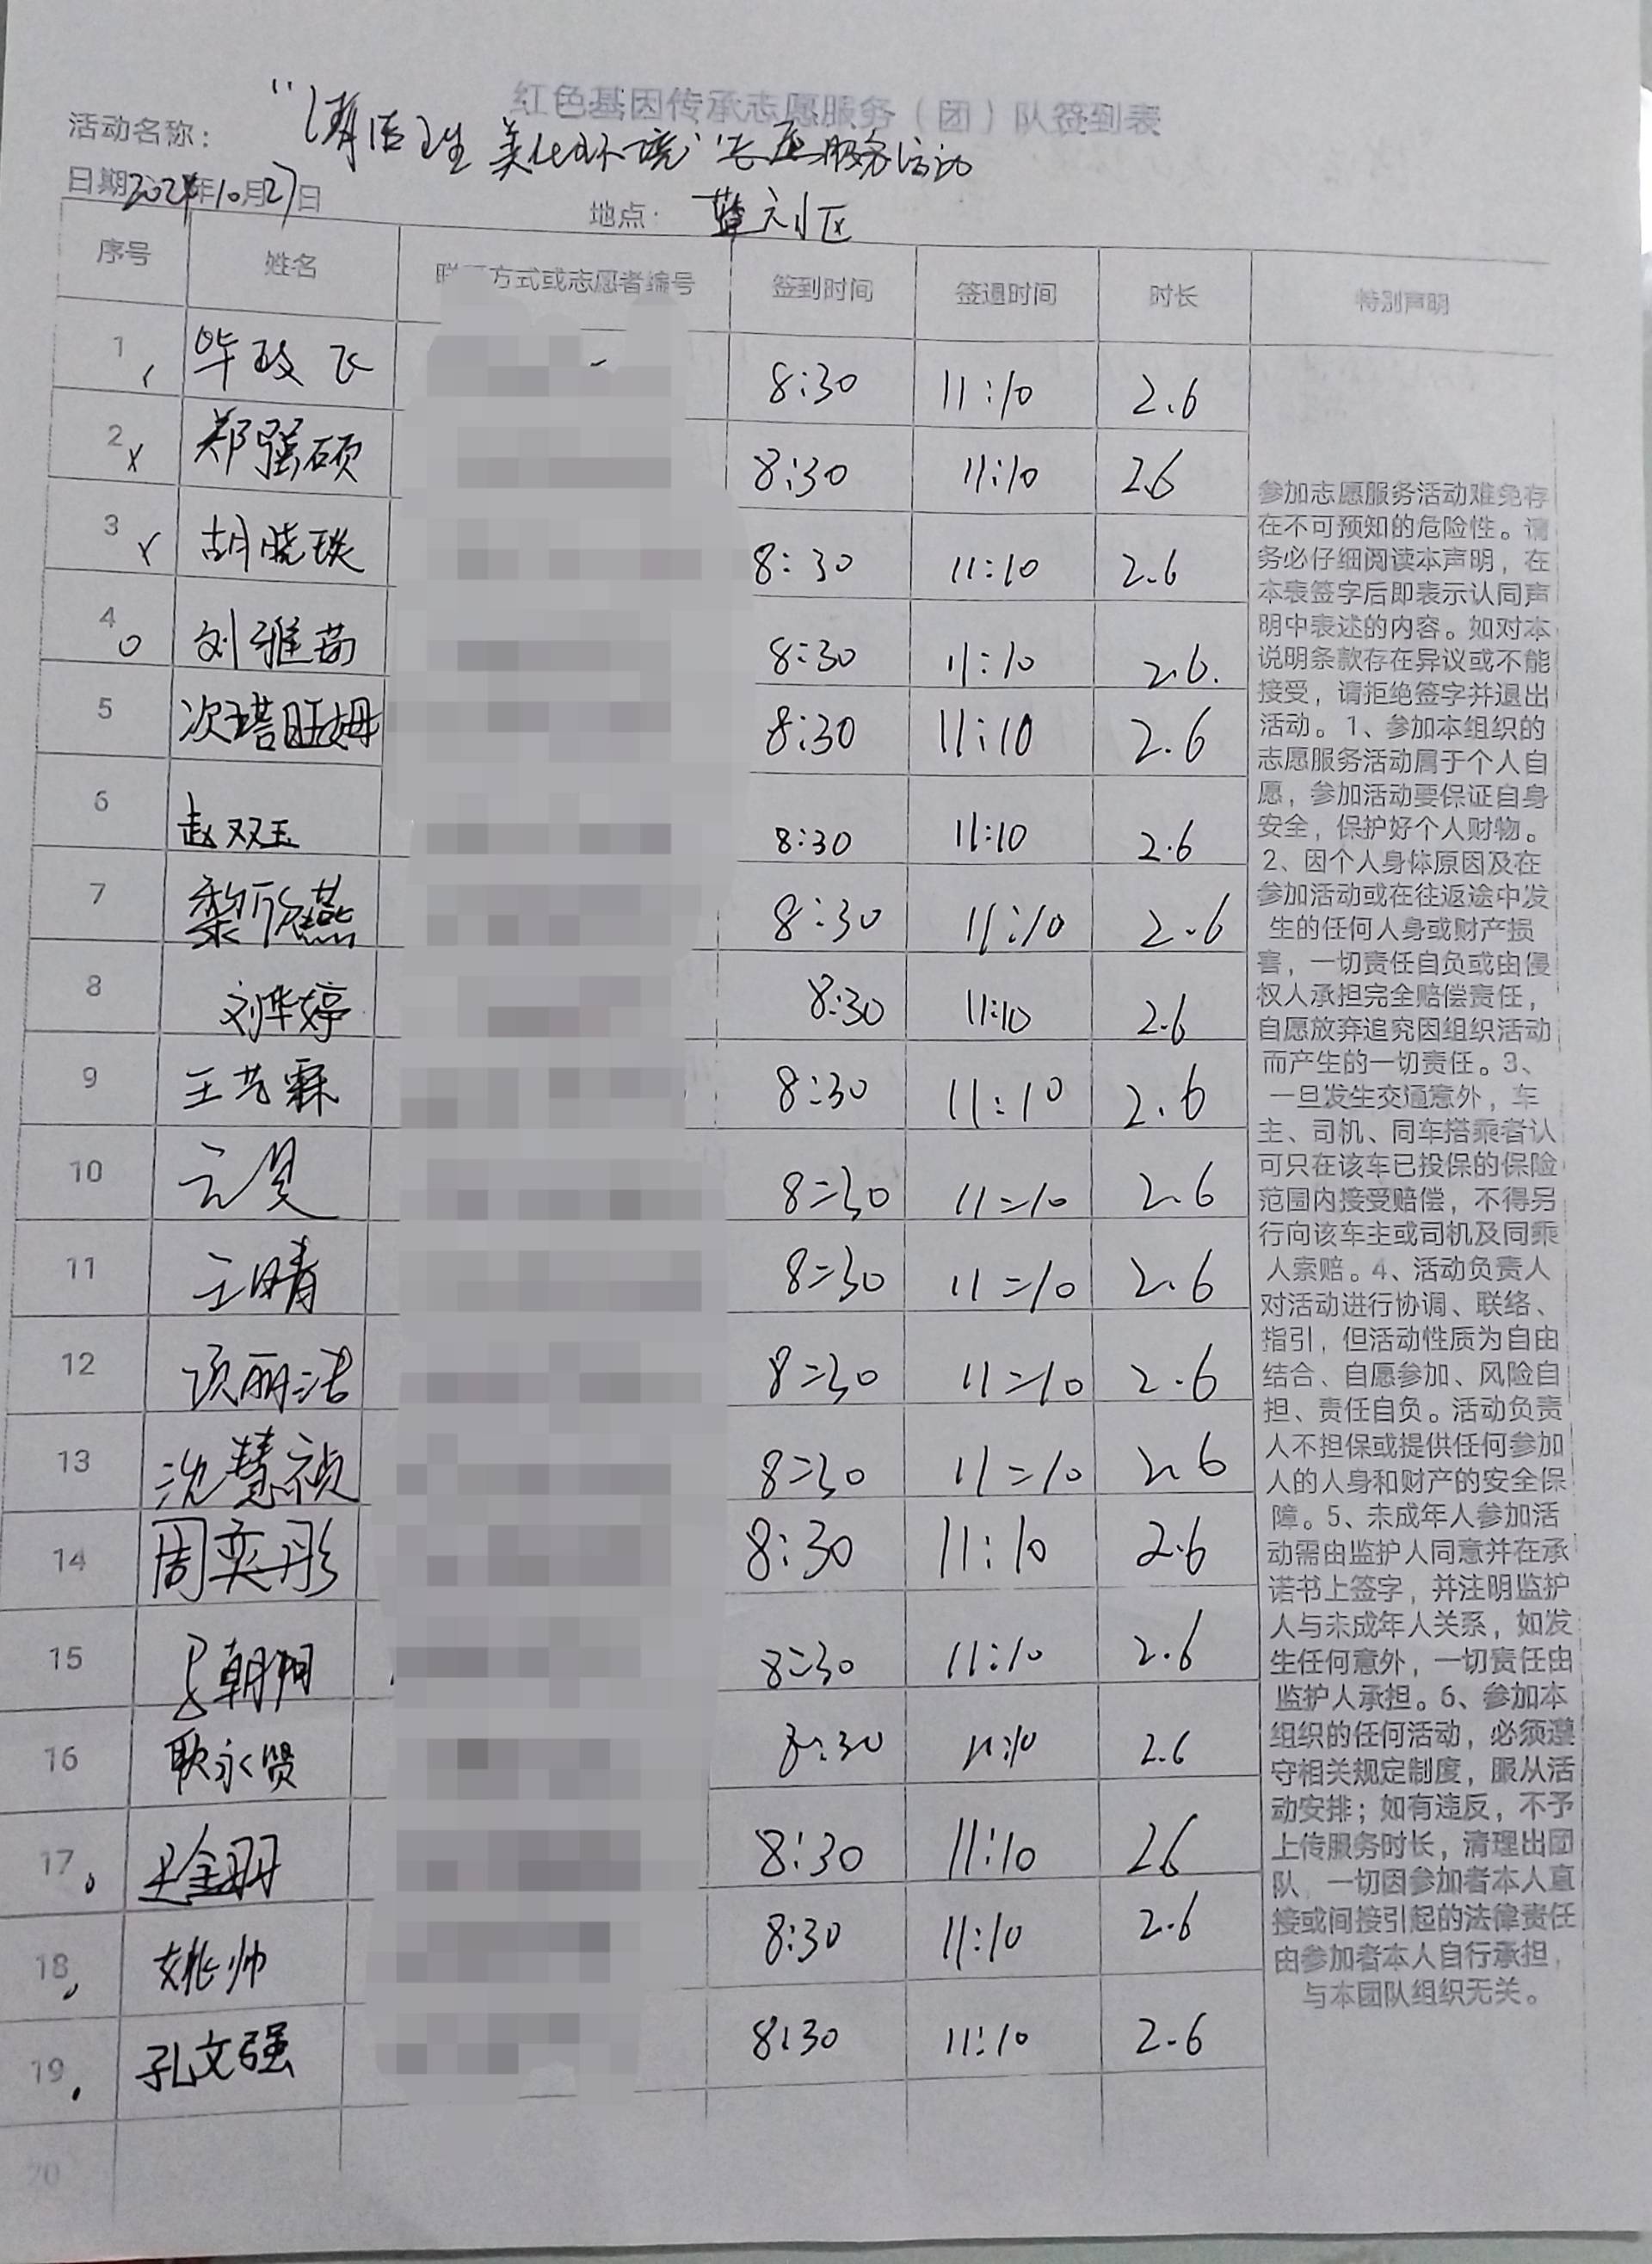 红色基因传承志愿服务（团）队签到表
活动名称： "清洁卫生 美化环境"志愿服务活动
日期2024年10月27日
地点： 蓝天小区
序号 姓名 方式或志愿者编号 签到时间 签退时间 时长 特别声明
1 毕政飞 8:30 11:10 2.6
2 郑强硕 8:30 11:10 2.6
3 胡晓琰 8:30 11:10 2.6
4 刘雅茹 8:30 11:10 2.6
5 次塔旺姆 8:30 11:10 2.6
6 赵双玉 8:30 11:10 2.6
7 黎欣燕 8:30 11:10 2.6
8 刘华婷 8:30 11:10 2.6
9 王艺霖 8:30 11:10 2.6
10 8:30 11:10 2.6
11 王晴 8:30 11:10 2.6
12 丽洁 8:30 11:10 2.6
13 沈慧祯 8:30 11:10 2.6
14 周奕彤 8:30 11:10 2.6
15 朝阳 8:30 11:10 2.6
16 耿永贤 8:30 11:10 2.6
17 8:30 11:10 2.6
18 姚帅 8:30 11:10 2.6
19 孔文强 8:30 11:10 2.6
20
参加志愿服务活动难免存
在不可预知的危险性。请
务必仔细阅读本声明，在
本表签字后即表示认同声
明中表述的内容。如对本
说明条款存在异议或不能
接受，请拒绝签字并退出
活动。1、参加本组织的
志愿服务活动属于个人自
愿，参加活动要保证自身
安全，保护好个人财物。
2、因个人身体原因及在
参加活动或在往返途中发
生的任何人身或财产损
害，一切责任自负或由侵
权人承担完全赔偿责任，
自愿放弃追究因组织活动
而产生的一切责任。3、
一旦发生交通意外，车
主、司机、同车搭乘者认
可只在该车已投保的保险
范围内接受赔偿，不得另
行向该车主或司机及同乘
人索赔。4、活动负责人
对活动进行协调、联络、
指引，但活动性质为自由
结合、自愿参加、风险自
担、责任自负。活动负责
人不担保或提供任何参加
人的人身和财产的安全保
障。5、未成年人参加活
动需由监护人同意并在承
诺书上签字，并注明监护
人与未成年人关系，如发
生任何意外，一切责任由
监护人承担。6、参加本
组织的任何活动，必须遵
守相关规定制度，服从活
动安排；如有违反，不予
上传服务时长，清理出团
队，一切因参加者本人直
接或间接引起的法律责任
由参加者本人自行承担，
与本团队组织无关。